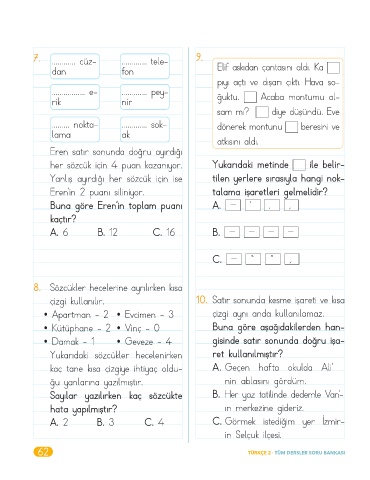 7.
............ cüz-
dan
............. tele-
fon
................ e-
rik
............. pey-
nir
......... nokta-
lama
.......... sok-
ak
Eren satır sonunda doğru ayırdığı
her sözcük için 4 puan kazanıyor.
Yanlış ayırdığı her sözcük için ise
Eren'in 2 puanı siliniyor.
Buna göre Eren'in toplam puanı
kaçtır?
A. 6 B. 12 C. 16
8. Sözcükler hecelerine ayrılırken kısa
çizgi kullanılır.
• Apartman - 2 • Evcimen - 3
• Kütüphane - 2 • Vinç - 0
• Damak - 1 • Geveze - 4
Yukarıdaki sözcükler hecelenirken
kaç tane kısa çizgiye ihtiyaç oldu-
ğu yanlarına yazılmıştır.
Sayılar yazılırken kaç sözcükte
hata yapılmıştır?
A. 2 B. 3 C. 4
9.
Elif askıdan çantasını aldı. Ka
pıyı açtı ve dışarı çıktı. Hava so-
ğuktu. Acaba montumu al-
sam mı? diye düşündü. Eve
dönerek montunu beresini ve
atkısını aldı.
Yukarıdaki metinde ile belir-
tilen yerlere sırasıyla hangi nok-
talama işaretleri gelmelidir?
A.
B. – – – –
C.
10. Satır sonunda kesme işareti ve kısa
çizgi aynı anda kullanılamaz.
Buna göre aşağıdakilerden han-
gisinde satır sonunda doğru işa-
ret kullanılmıştır?
A. Geçen hafta okulda Ali'
nin ablasını gördüm.
B. Her yaz tatilinde dedemle Van'-
ın merkezine gideriz.
C. Görmek istediğim yer İzmir-
in Selçuk ilçesi.
62
TÜRKÇE 2 - TÜM DERSLER SORU BANKASI